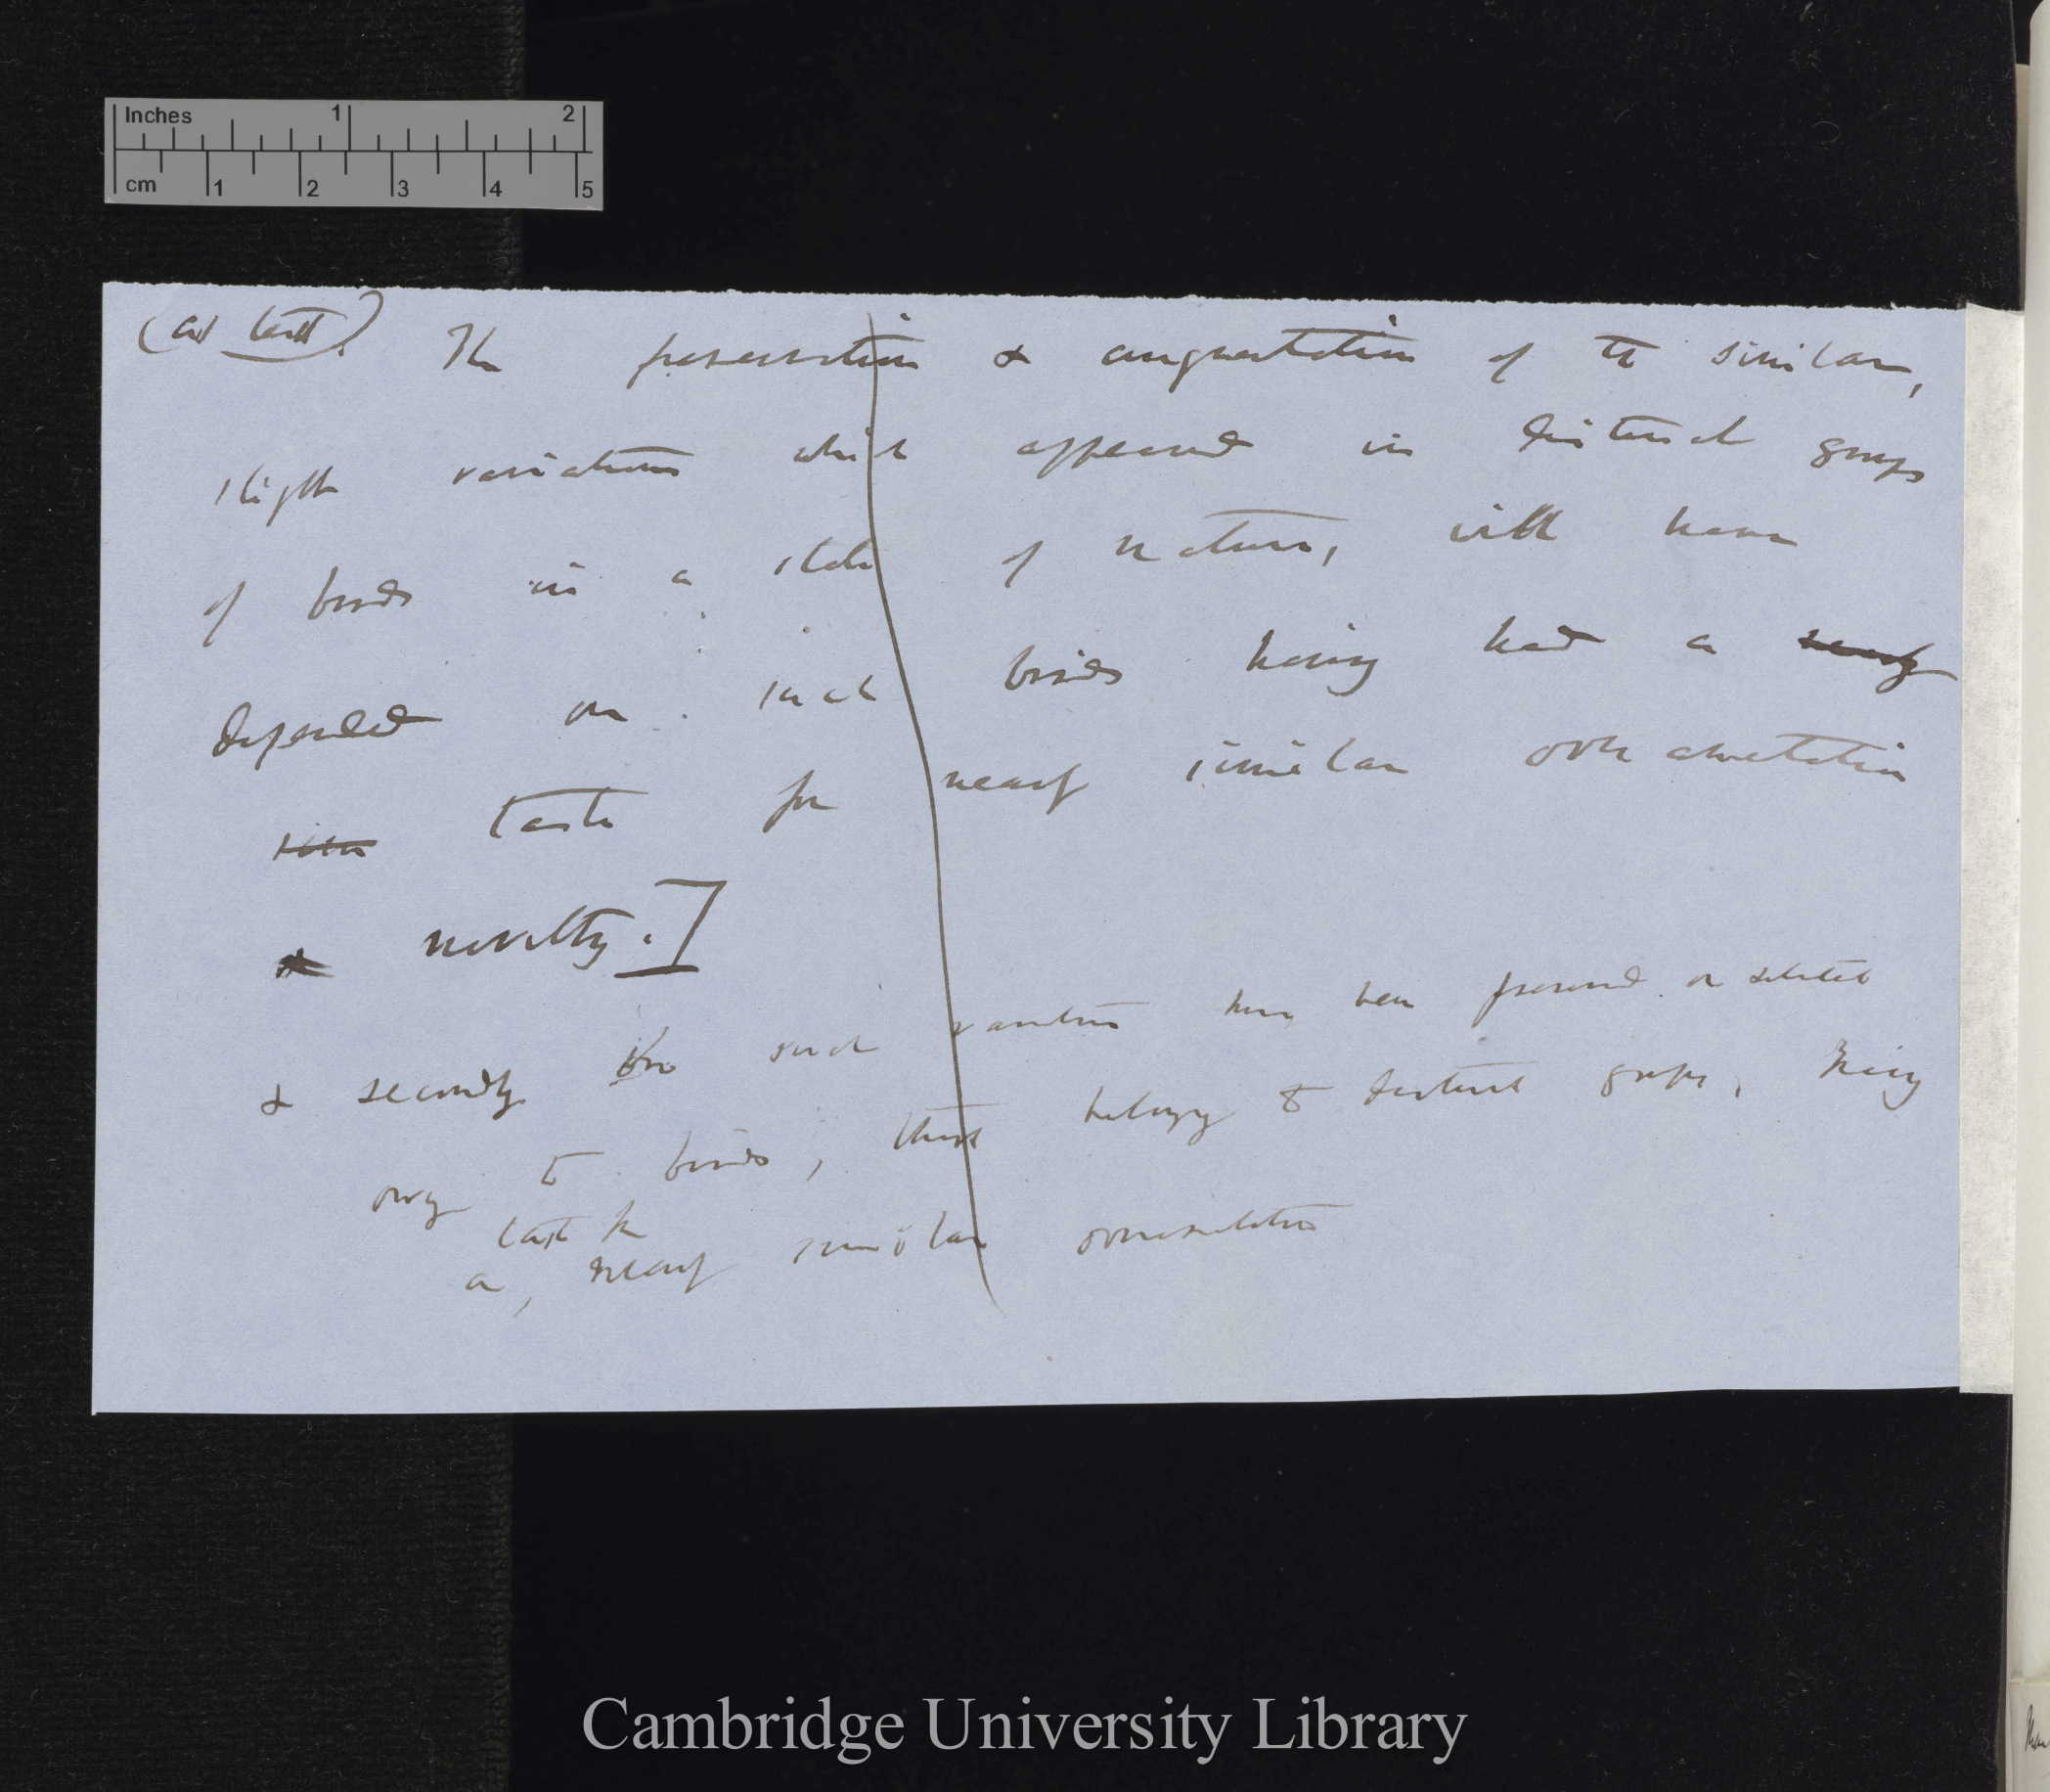 Inches 1 2
cm 1 2 3 4 5
(as last). The preservation & augmentation of the similar,
slight variations which appeared in distinct groups
of birds in a state of nature, will have
depended on such birds having had a nearly
taste for nearly similar ornamentation
& novelty.]
& secondly such variations have been preserved or selected
owing to birds, belonging to distinct groups, having
taste for
a, nearly similar ornamentation
Cambridge University Library